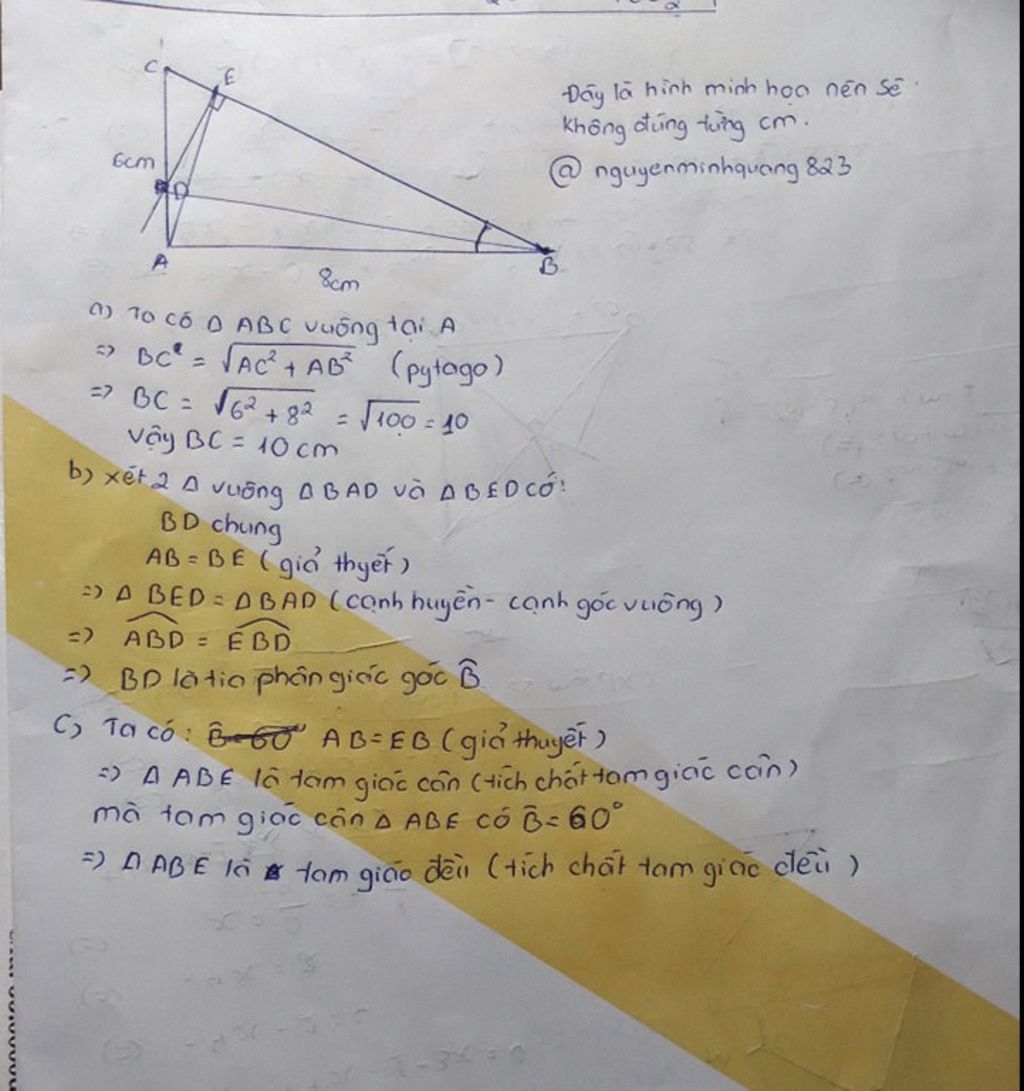 C
E
6cm
D
A
8cm
B
Đây là hình minh họa nên sẽ
không đúng từng cm.
@ nguyenminhquang823
a) Ta có Δ ABC vuông tại A
=> BC² = √AC² + AB² (pytago)
=> BC = √6² + 8² = √100 = 10
vậy BC = 10 cm
b) xét 2 Δ vuông Δ BAD và Δ BED có:
BD chung
AB = BE ( giả thyết )
=> Δ BED = Δ BAD ( cạnh huyền - cạnh góc vuông )
=> ABD̂ = EBD̂
=> BD là tia phân giác góc B̂
C) Ta có : B̂ = 60° AB = EB ( giả thuyết )
=> Δ ABE là tam giác cân ( tích chất tam giác cân )
mà tam giác cân Δ ABE có B̂ = 60°
=> Δ ABE là tam giác đều ( tích chất tam giác đều )